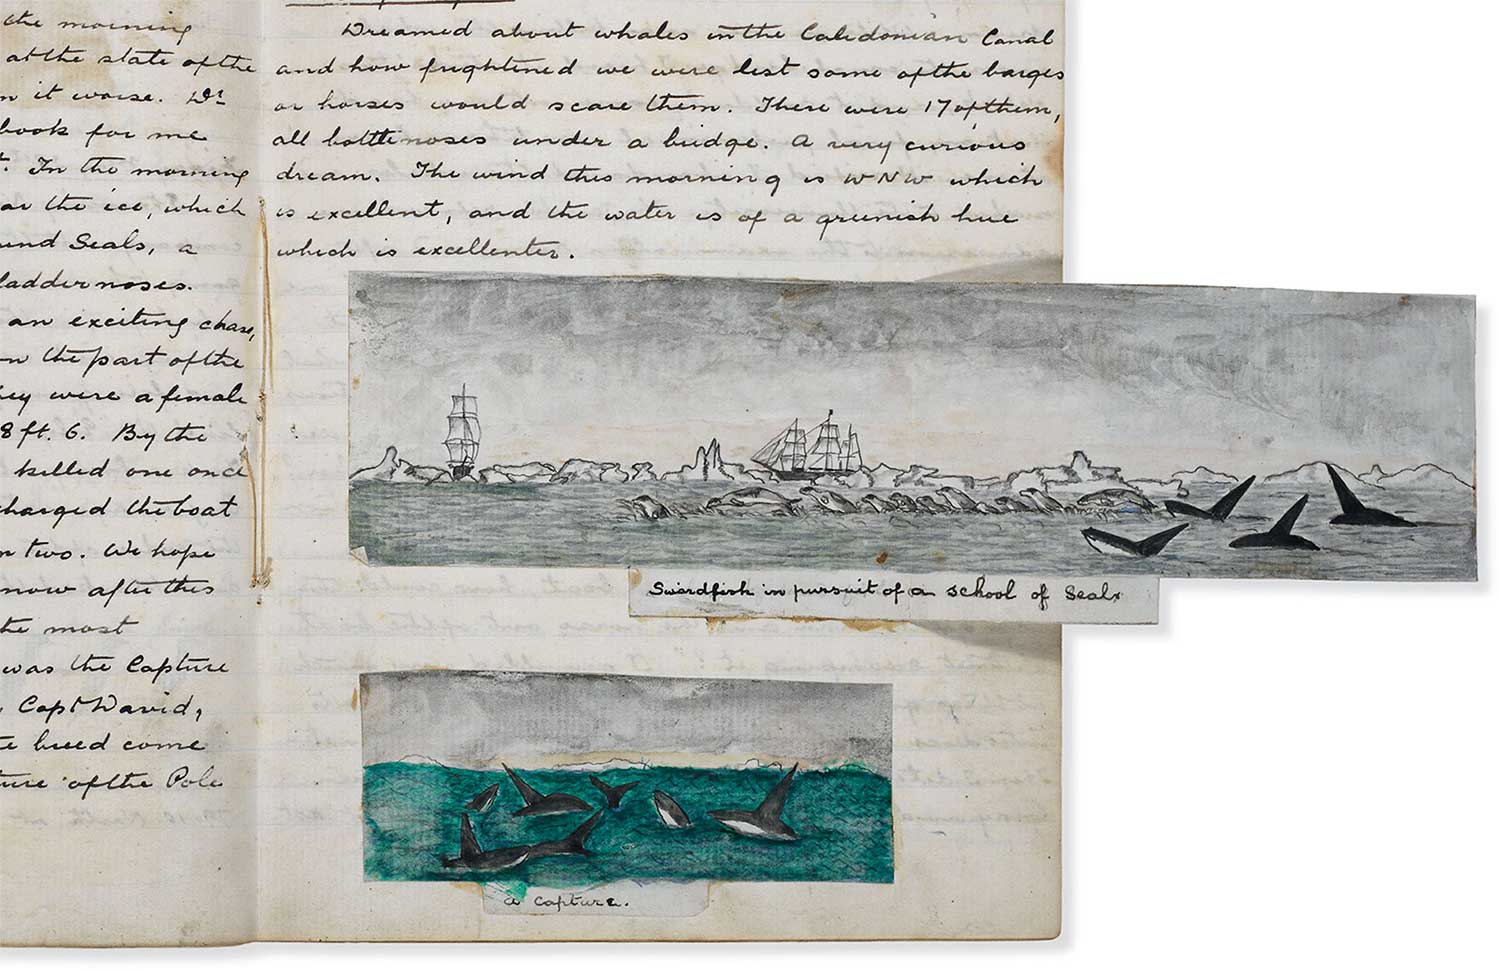 the morning
at the state of the
it worse. Dr
book for me
In the morning
the ice, which
Seals, a
laddernoses.
an exciting chase,
on the part of the
hey were a female
8 ft. 6. By the
killed one once
charged the boat
in two. We hope
now after this
the most
was the Capture
Capt David,
breed come
ture of the Pole
Dreamed about whales in the Caledonian Canal
and how frightened we were lest some of the barges
or horses would scare them. There were 17 of them,
all bottlenoses under a bridge. A very curious
dream. The wind this morning is WNW which
is excellent, and the water is of a greenish hue
which is excellenter.
Swordfish in pursuit of a school of Seals
A Capture.